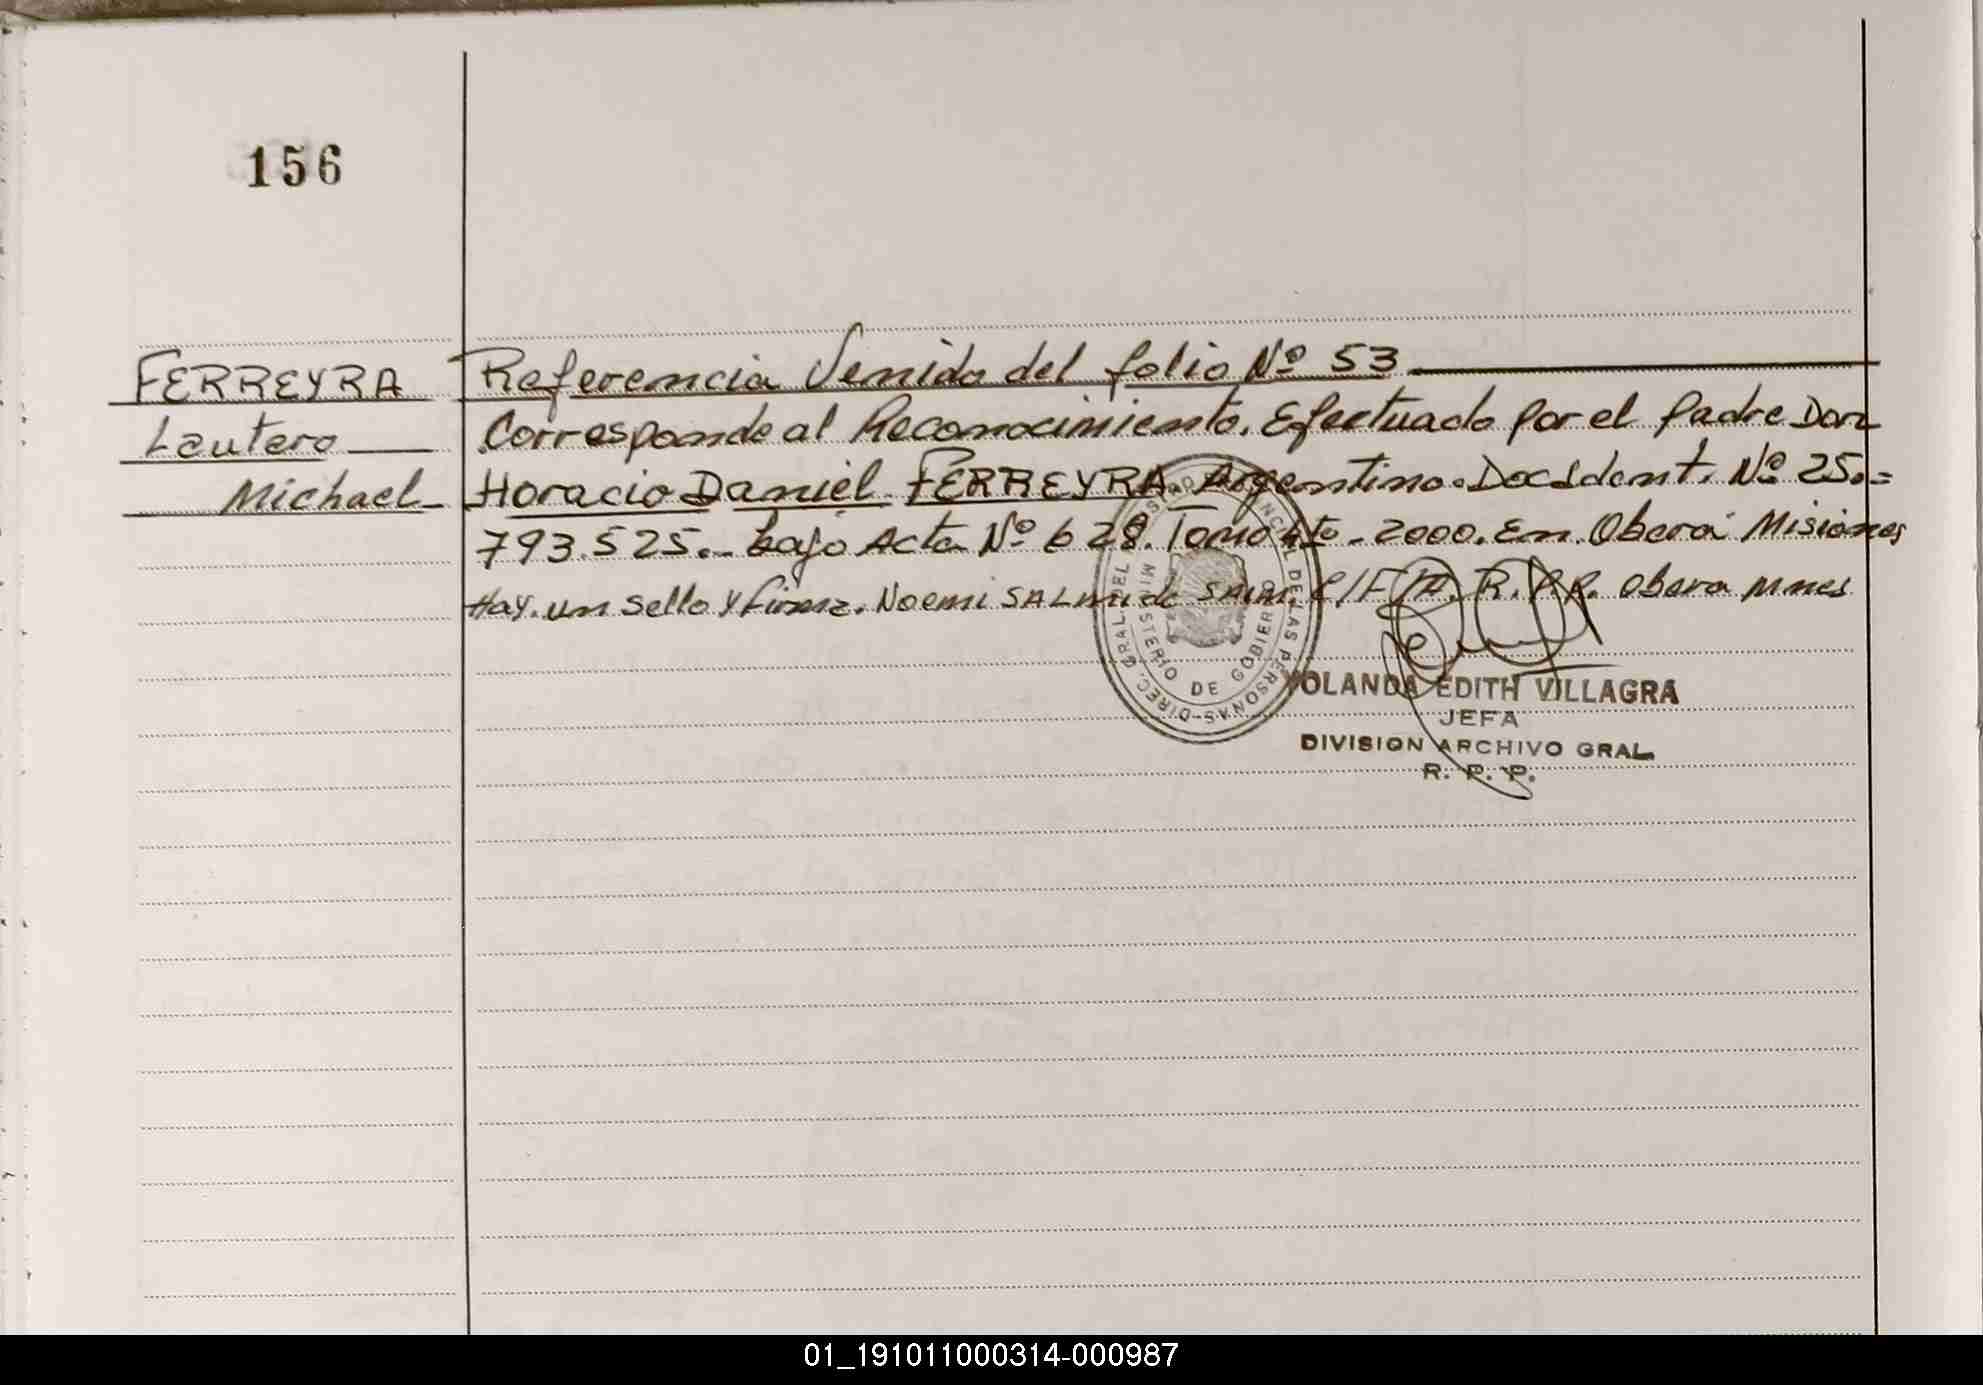 156
FERREYRA
Lautaro
Michael
Referencia Venida del folio Nº 53
Corresponde al Reconocimiento. Efectuado por el padre Don
Horacio Daniel FERREYRA. Argentino. Doc. Ident. Nº 25.=
793.525.- bajo Acta Nº 628. Tomo 4to - 2000. En Oberá Misiones
Hay. un sello y firma. Noemi SALMI de R. P. P. Obera Mnes
DIREC. GRAL. DEL DE LAS PERSONAS
MINISTERIO DE GOBIERNO
YOLANDA EDITH VILLAGRA
JEFA
DIVISION ARCHIVO GRAL.
R. P. P.
01_191011000314-000987